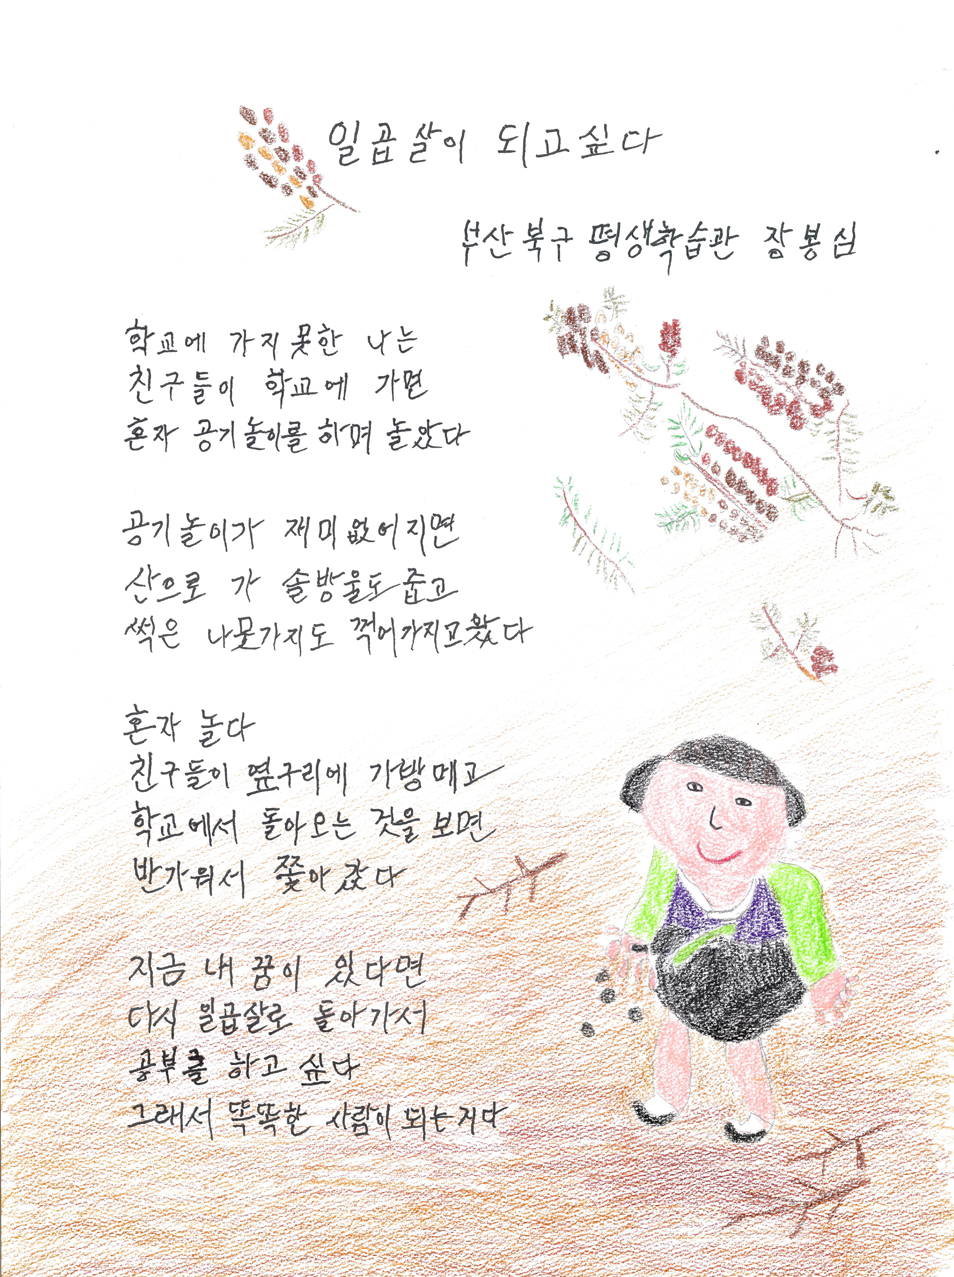 일곱살이 되고싶다
부산북구 평생학습관 장봉심
학교에 가지못한 나는
친구들이 학교에 가면
혼자 공기놀이를 하며 놀았다
공기놀이가 재미없어지면
산으로 가 솔방울도 줍고
썩은 나뭇가지도 꺽어가지고왔다
혼자 놀다
친구들이 옆구리에 가방메고
학교에서 돌아오는 것을 보면
반가워서 쫓아갔다
지금 내 꿈이 있다면
다시 일곱살로 돌아가서
공부를 하고 싶다
그래서 똑똑한 사람이 되는거다